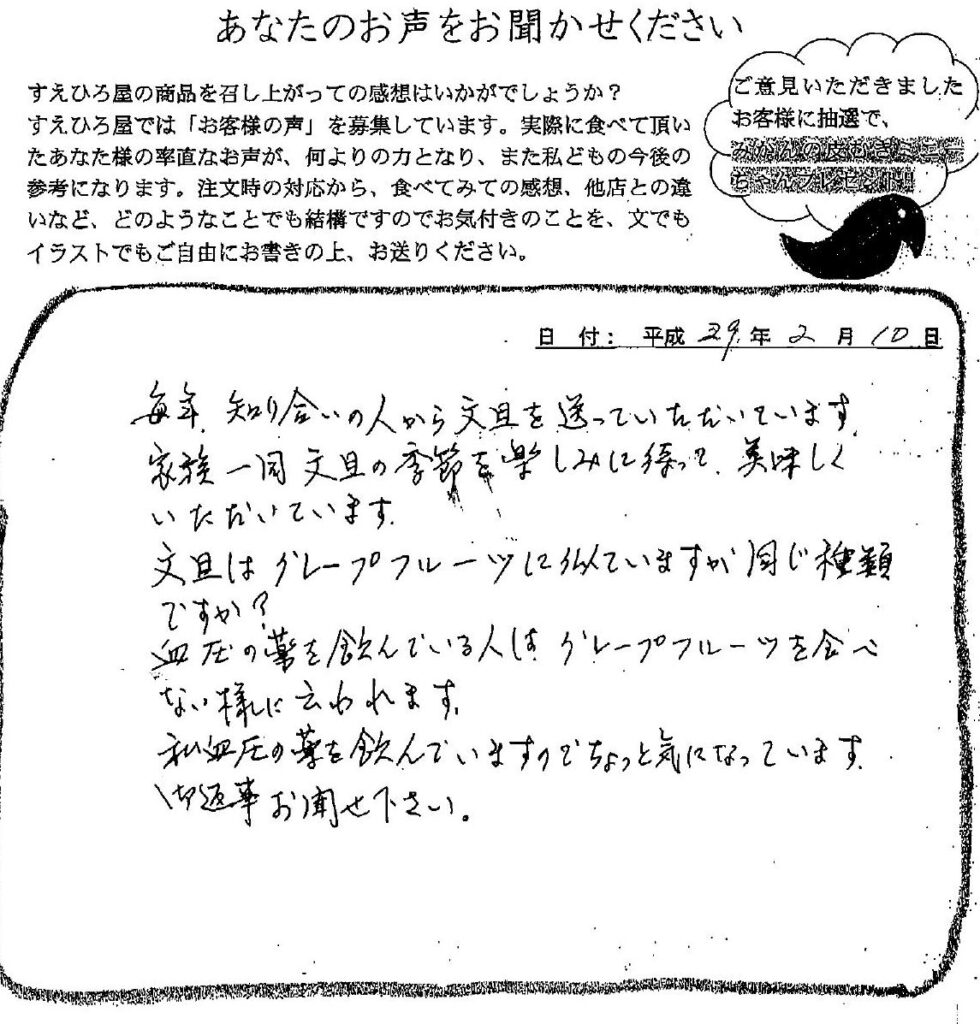 あなたのお声をお聞かせください
すえひろ屋の商品を召し上がっての感想はいかがでしょうか？
すえひろ屋では「お客様の声」を募集しています。実際に食べて頂い
たあなた様の率直なお声が、何よりの力となり、また私どもの今後の
参考になります。注文時の対応から、食べてみての感想、他店との違
いなど、どのようなことでも結構ですのでお気付きのことを、文でも
イラストでもご自由にお書きの上、お送りください。
ご意見いただきました
お客様に抽選で、
みかんの皮むき
ちゃんプレゼント!!
日 付： 平成 29 年 2 月 10 日
毎年、知り合いの人から文旦を送っていただいています。
家族一同文旦の季節を楽しみに待って、美味しく
いただいています。
文旦はグレープフルーツに似ていますが同じ種類
ですか？
血圧の薬を飲んでいる人はグレープフルーツを食べ
ない様に云われます。
私血圧の薬を飲んでいますのでちょっと気になっています。
御返事お聞せ下さい。